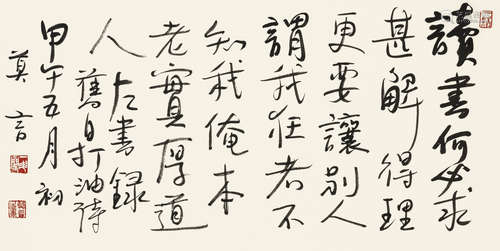 讀書何必求
甚解得理
更要讓別人
謂我狂者不
知我俺本
老實厚道
人左書錄
舊自打油詩
甲午五月初
莫言